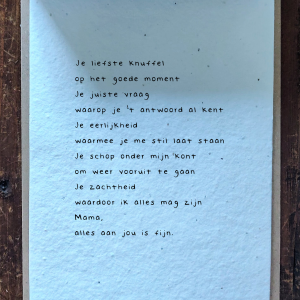 Je liefste knuffel
op het goede moment
Je juiste vraag
waarop je 't antwoord al kent
Je eerlijkheid
waarmee je me stil laat staan
Je schop onder mijn kont
om weer vooruit te gaan
Je zachtheid
waardoor ik alles mag zijn
Mama,
alles aan jou is fijn.